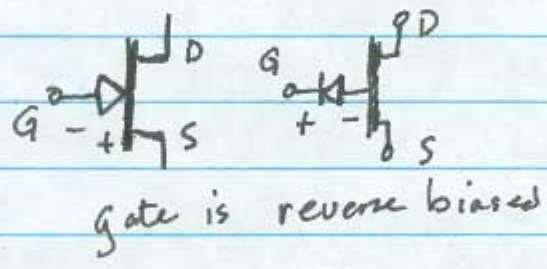 D D
G G
- + S + - S
gate is reverse biased